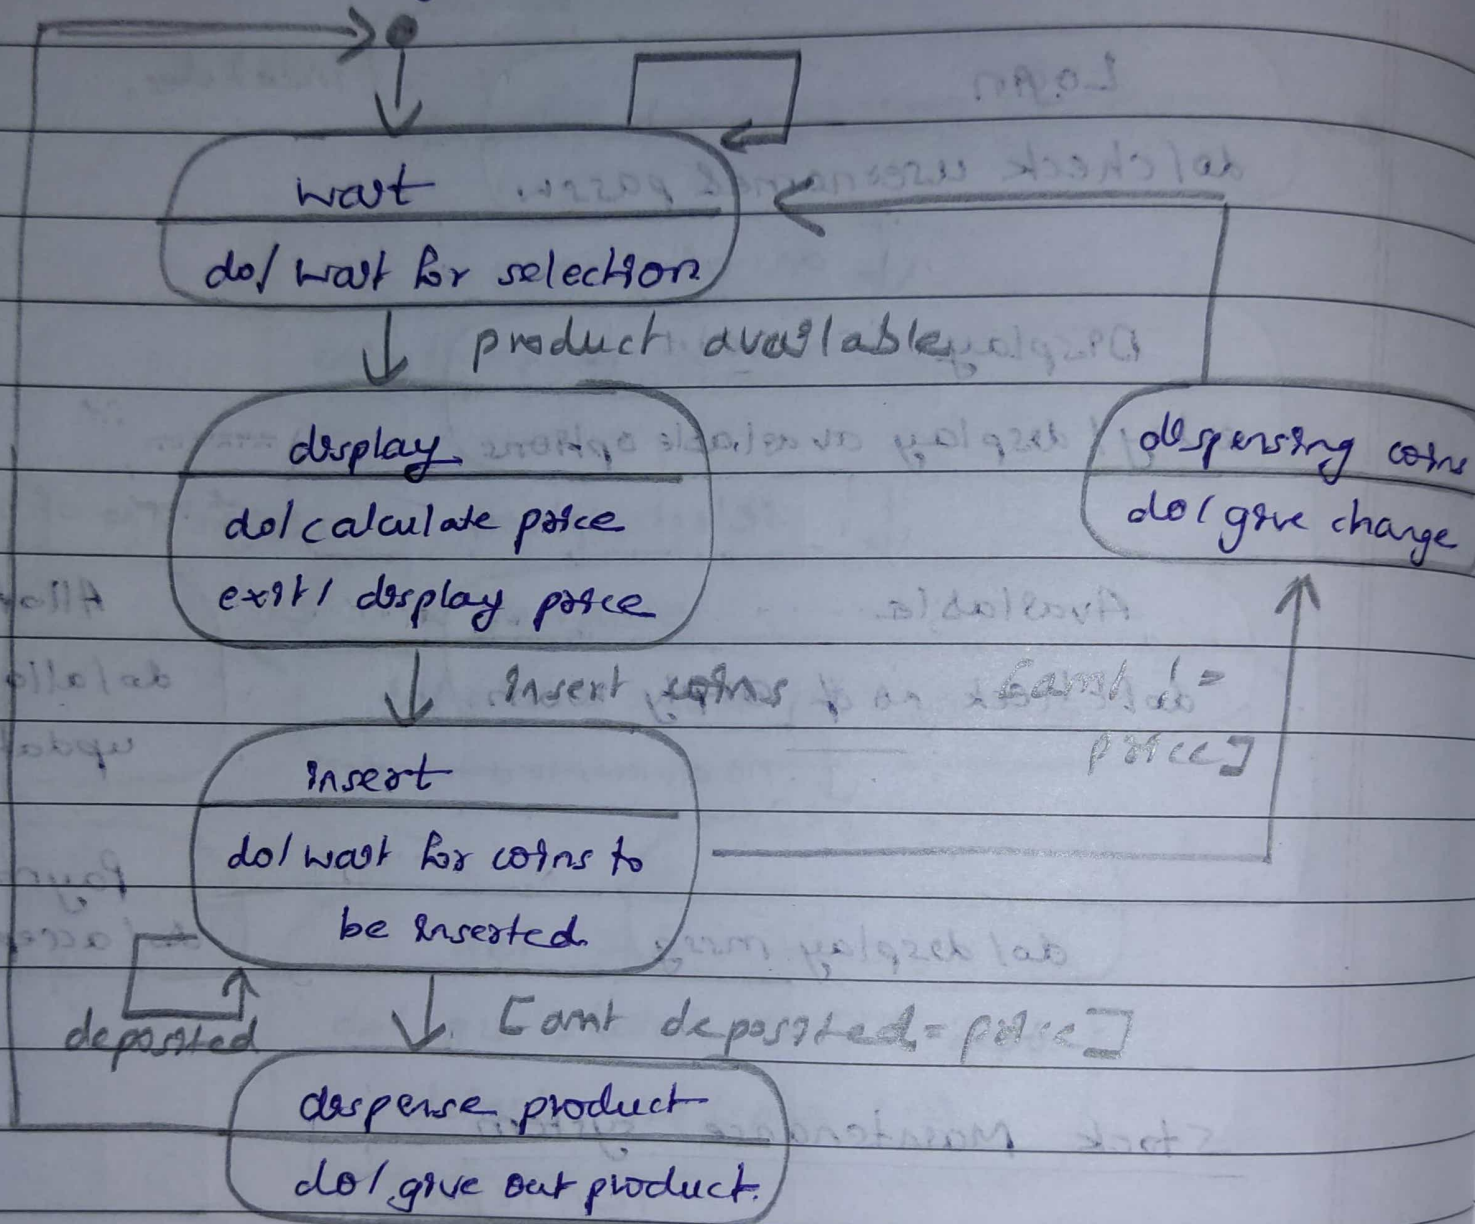 wait
do/ wait for selection
product available
display
do/ calculate price
exit/ display price
dispensing coins
do/ give change
insert coins
[amt != price]
insert
do/ wait for coins to
be inserted
deposited
[amt deposited = price]
dispense product
do/ give out product.